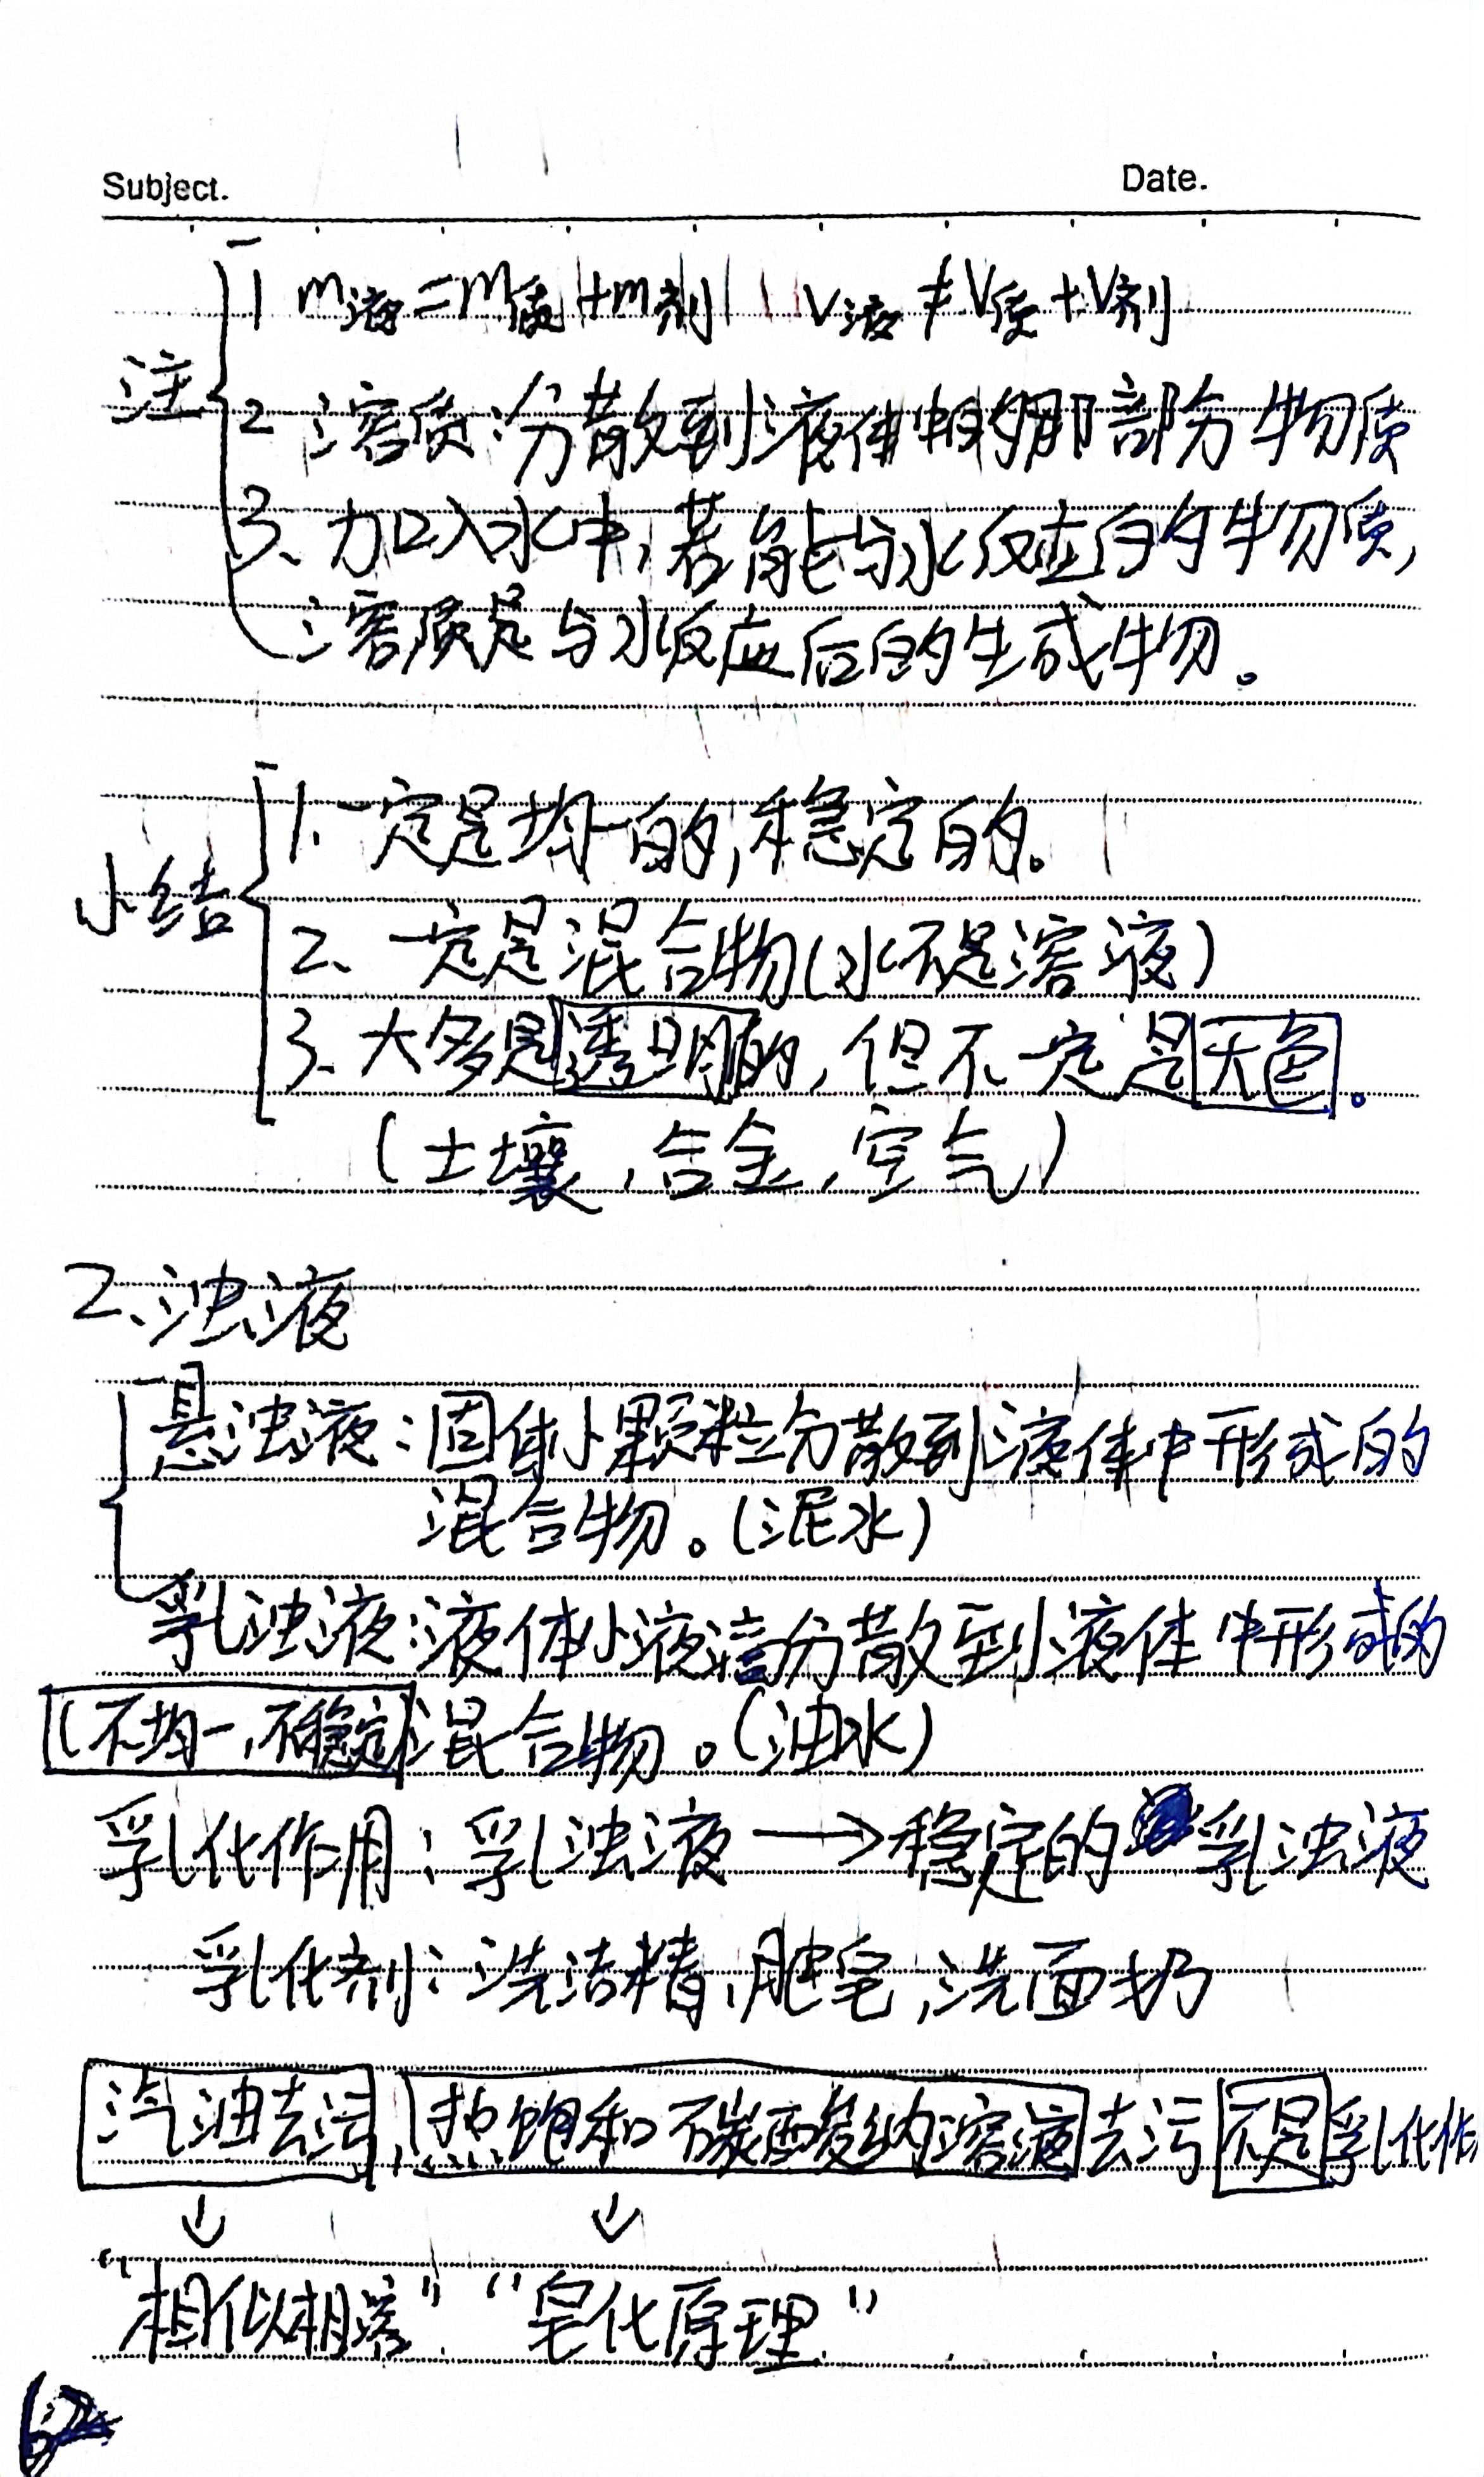 Subject. Date.
1 m液=m质+m剂 V液≠V质+V剂
注
2 溶质:分散到液体中的那部分物质
3、加入水中,若能与水反应的物质,
溶质是与水反应后的生成物。
1.一定是均一的,稳定的。
小结
2、一定是混合物(水不是溶液)
3、大多是透明的,但不一定是无色。
(土壤,合金,空气)
2、浊液
悬浊液:固体小颗粒分散到液体中形成的
混合物。(泥水)
乳浊液:液体小液滴分散到液体中形成的
(不均一,不稳定)混合物。(油水)
乳化作用:乳浊液→稳定的乳浊液
乳化剂:洗洁精,肥皂,洗面奶
汽油去污,热饱和碳酸钠溶液去污不是乳化作
↓ ↓
“相似相溶” “皂化原理”
62